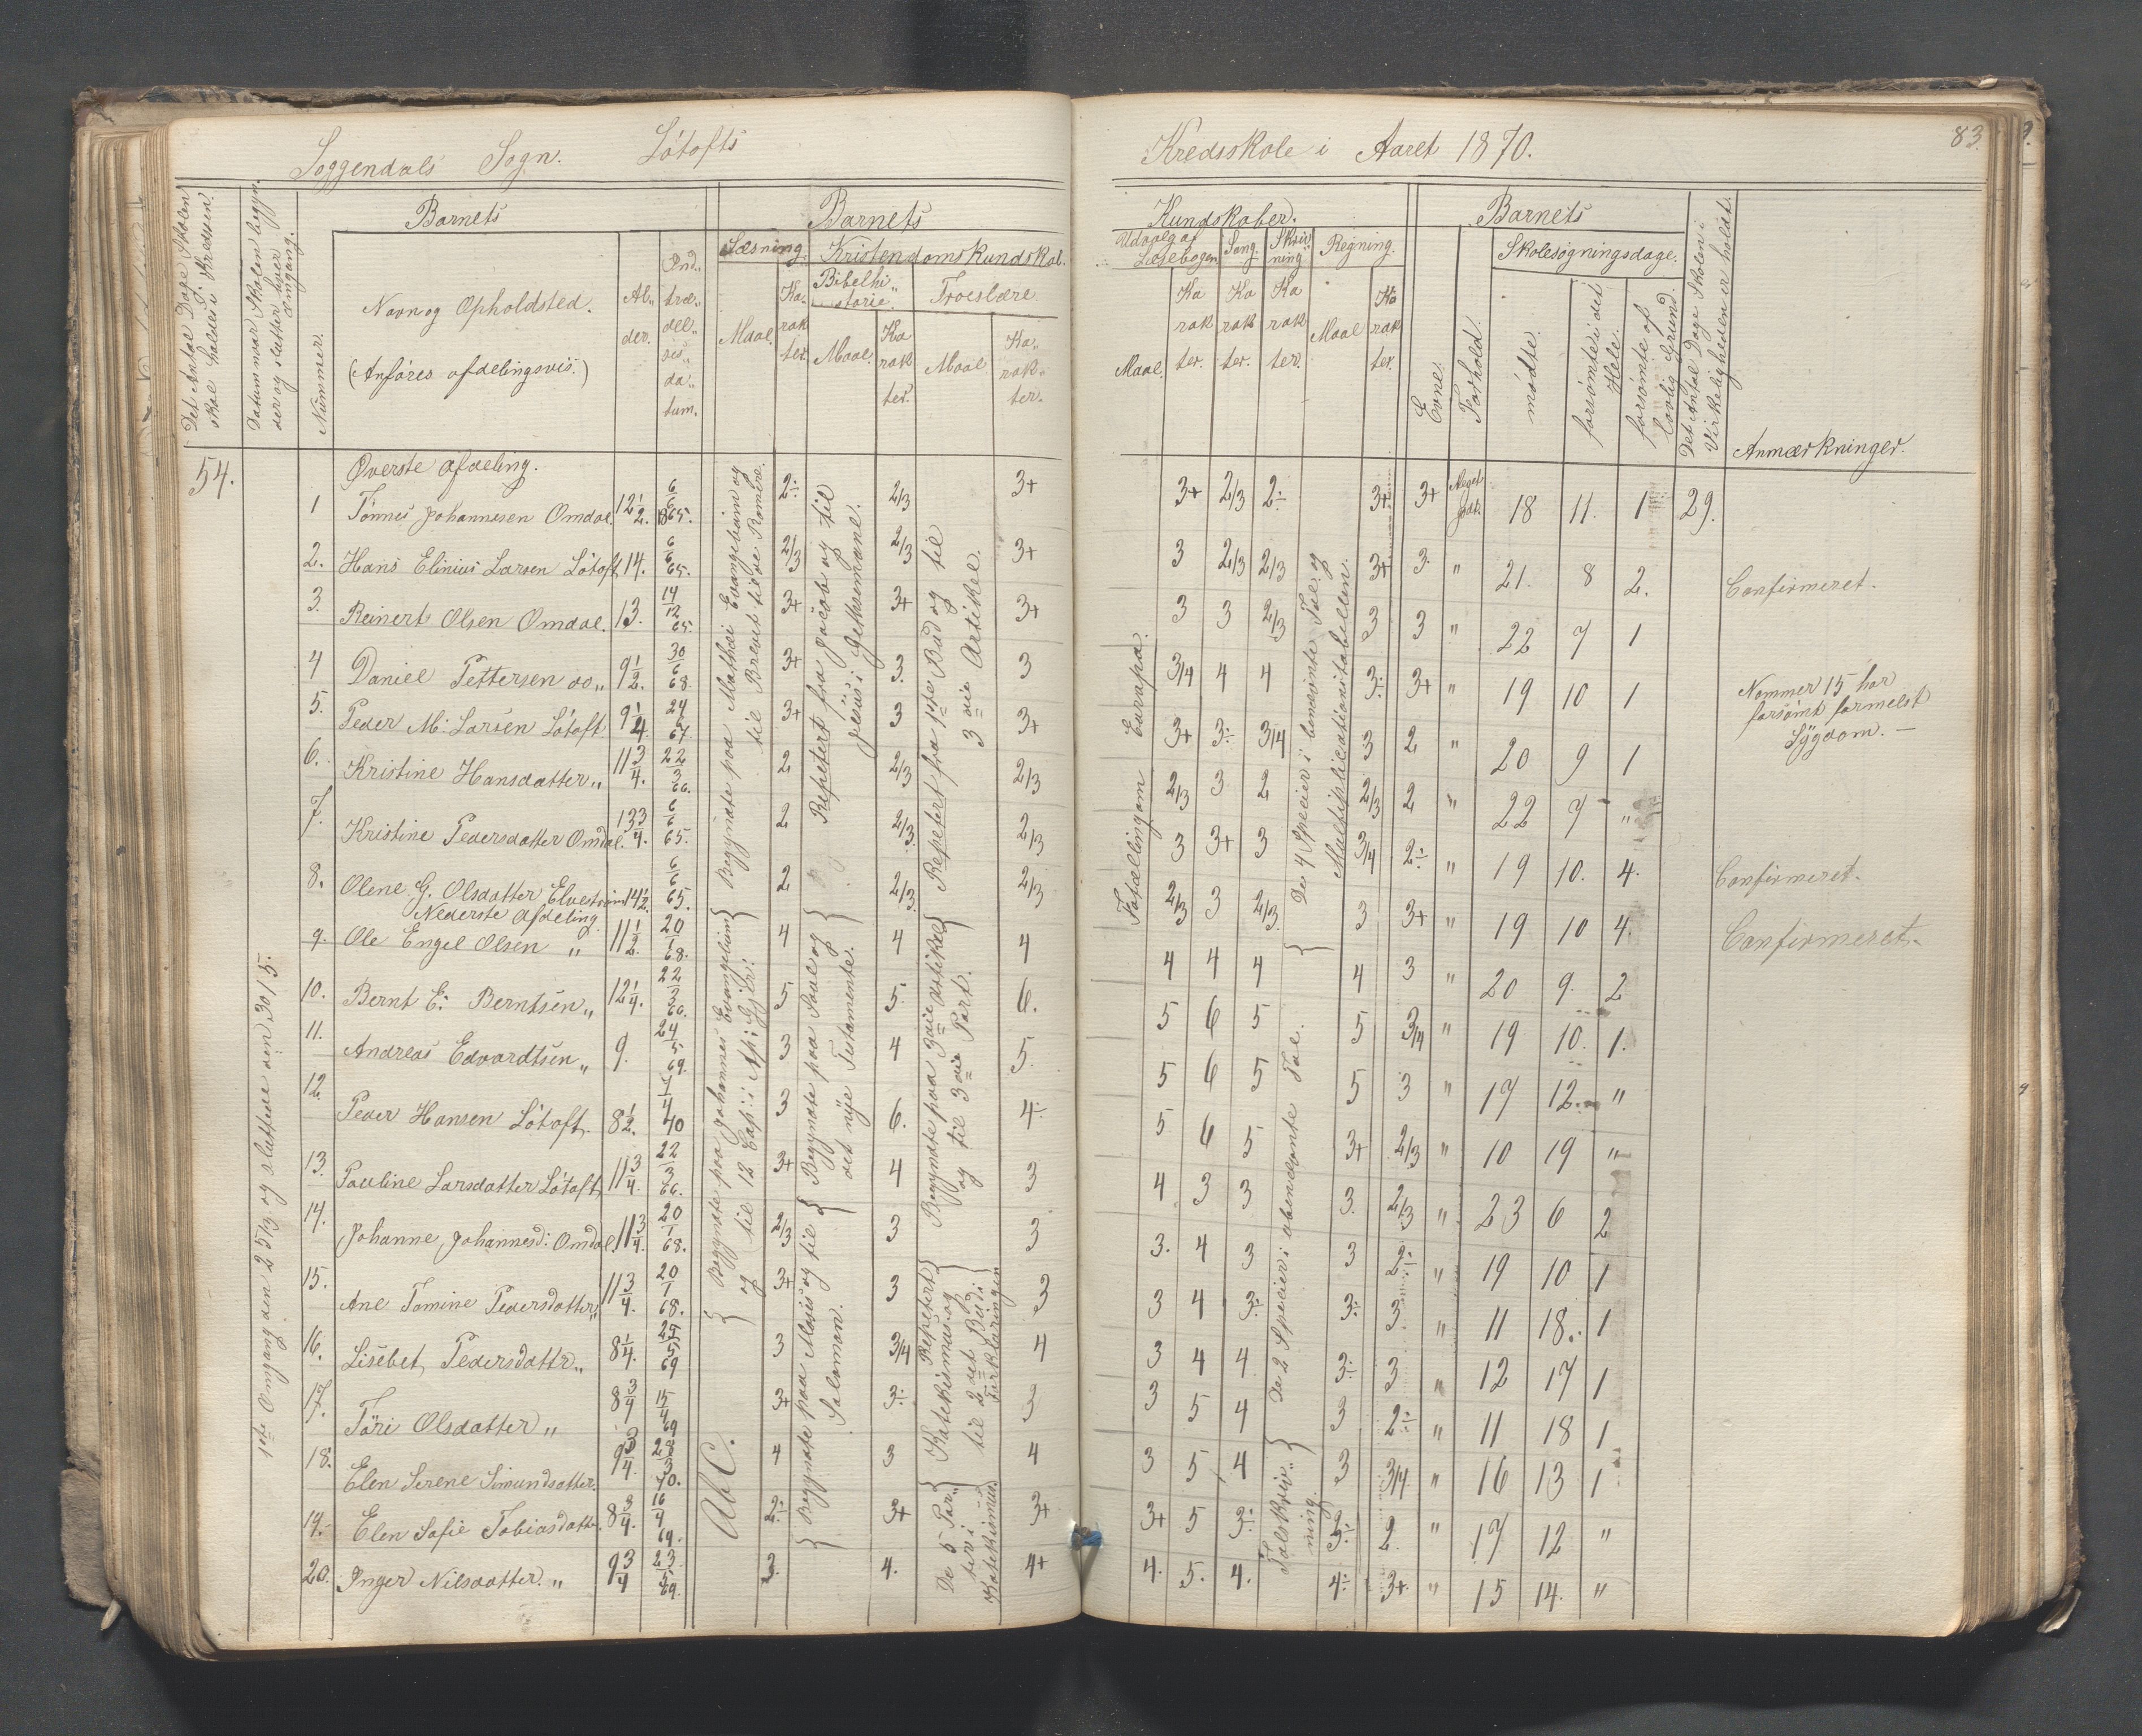 Soggendals Sogn. Løtofts Kredsskole i Aaret 1870. 83.
Det Antal Dage Skolen skal holdes i Kredsen.
Datum naar Skolen begynder og slutter hver Omgang.
Nummer.
Barnets
Navn og Opholdsted.
(Anføres afdelingsvis.)
Alder.
Indtrædelsesdatum.
Barnets Kundskaber.
Læsning.
Maal. Karakter.
Kristendomskundskab.
Bibelhistorie.
Maal. Karakter.
Troeslære
Maal Karakter.
Udvalg af Læsebogen
Maal. Karakter.
Sang. Karakter.
Skrivning Karakter.
Regning.
Maal Karakter.
Barnets
Evne.
Forhold.
Skolesøgningsdage.
mødte.
forsømte i det Hele.
forsømte af lovlig Grund.
Det Antal Dage Skolen i Virkeligheden er holdt.
Anmærkninger.
54.
1ste Omgang den 25/4 og sluttede den 30/5.
Øverste Afdeling.
1 Tønnes Johannesen Omdal. 12 1/2. 6/6 1865. 2÷ 2/3 3+ 3+ 2/3 2÷ 3+ 3+ Meget godt. 18 11. 1 29.
2. Hans Elinius Larsen Løtoft 14. 6/6 65. 2/3 2/3 3+ 3 2/3 2/3 3+ 3. " 21. 8 2. Confirmeret.
3. Reinert Olsen Omdal. 13. 14/12 65. 3+ 3+ 3+ 3 3 2/3 3 3 " 22 7 1
4 Daniel Pettersen do " 9 1/2. 30/6 68. 3+ 3. 3 3/4 4 4 3÷ 3+ " 19 10 1
Nommer 15 har
forsømt formelst
Sygdom. —
5. Peder M: Larsen Løtoft 9 1/4. 24/ 67. 3+ 3 3+ 3+ 3÷ 3/4 3 2 " 20 9 1
6. Kristine Hansdatter " 11 3/4. 22/3 66. 2 2/3 2/3 2/3 3 2 2/3 2 " 22 7 "
7. Kristine Pedersdatter Omdal. 13 3/4. 6/6 65. 2 2/3. 2/3 3 3+ 3 3/4 2÷ " 19 10. 4. Confirmeret.
8. Olene G. Olsdatter 14 1/2. 6/6 65. 2 2/3. 2/3 2/3 3 2/3 3 3+ " 19 10 4. Confirmeret.
Nederste Afdeling.
9. Ole Engel Olsen " 11 1/2. 20/1 68. 4 4 4 4 4 4 4 3 " 20 9. 2
10. Bernt E: Berntsen " 12 1/4. 22/3 66. 5 5. 6. 5 6 5 5 3/4 " 19 10. 1.
11. Andreas Edvardtsen " 9. 24/5 69. 3 4 5. 5 6 5 5 3 " 17 12. "
12. Peder Hansen Løtoft. 8 1/2. 40 3 6. 4÷ 5 6 5 3+ 2/3 " 10 19 "
13. Pauline Larsdatter Løtoft 11 3/4. 22/3 66. 3+ 4 3 4 3 3 3. 2/3 " 23 6 2
14. Johanne Johannesd: Omdal. 11 3/4. 20/1 68. 2/3 3 3 3. 4 3 3 2÷ " 19 10 1
15. Ane Tomine Pedersdatter " 11 3/4. 20/1 68. 3+ 3 3 3 4 3÷ 3÷ 3. " 11 18. 1
16. Lisebet Pedersdattr " 8 1/4. 24/5 69 3 3/4 4 3 4 4 3÷ 3 " 12 17 1
17. Tøri Olsdatter " 8 3/4 15/4 69 3+ 3÷ 3 3 5 4 3 2÷ " 11 18 1
18. Elen Serene Simundsdatter. 9 3/4 28/3 70. 4 3 4 3 5 4 3 3/4 " 16 13 1
19. Elen Sofie Tobiasdatter. 8 3/4. 16/4 69. 2÷ 3+ 3+ 3+ 5 3÷ 3÷ 2 " 17 12 "
20. Inger Nilsdatter. " 9 3/4 23/5 69. 3. 4. 4+ 4. 5. 4. 4÷ 3+ " 15 14. "
Begyndte paa Mathæi Evangelium og til Brevet til de Romere.
Begyndte paa Johannes Evangelium og til 12 Cap: i Ap: Gj:
AbC.
Repetert fra Jacob og til Jesus i Gethsemane.
Begyndte paa Saul og det nye Testamente.
Begyndte paa Moses og til Salomon.
Repetert fra 1ste Bud og til 3die Artikel.
Begyndte paa 3die Artikel og til 3die Part.
Repetert Katekismus og til 2det Bud i Forklaringen
De 5 Parter i Katekismus.
Fotællingom Europa.
De 4 Specier i benevnte Tal og Multiplicationstabellen.
De 2 Specier i ubenævnte Tal.
Talskrivning.